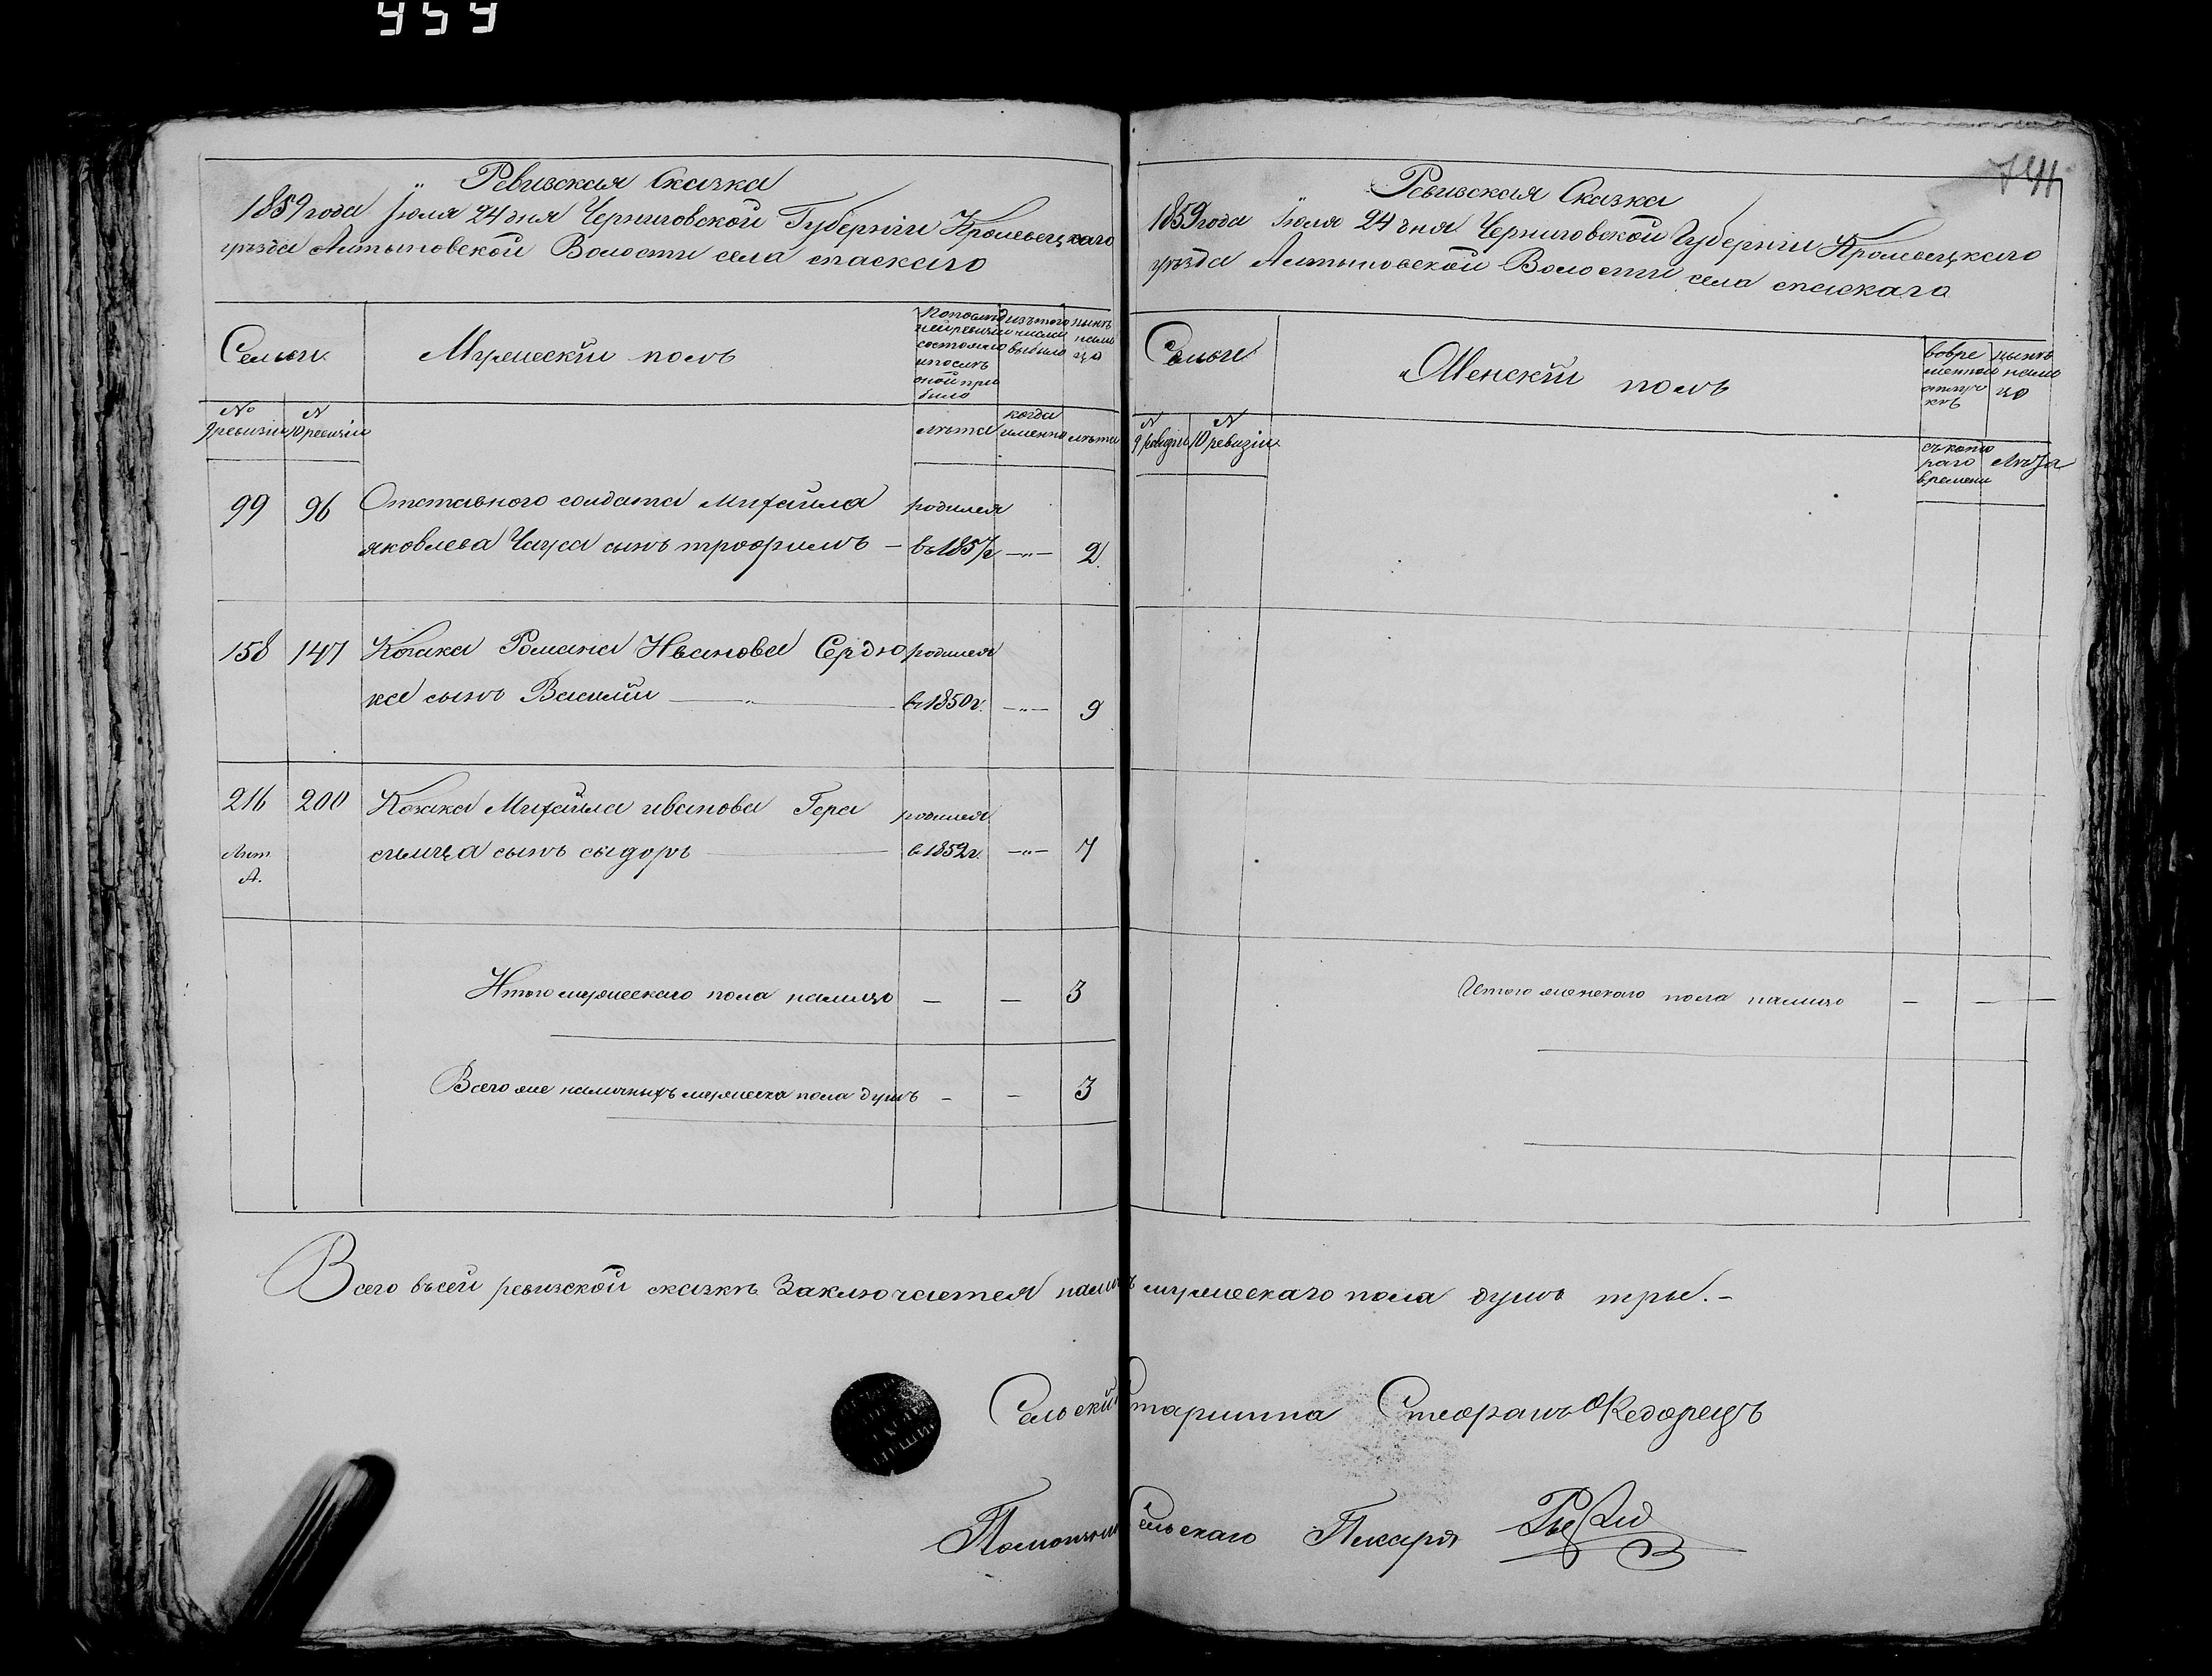 959
Ревизская Сказка
1859 года Іюля 24 дня Черниговской Губерніи Кролевецкаго
уѣзда Алтыновской Волости села спаскаго
Семьи
Мужескій полъ
По послѣд
ней ревизіи
состояло
и послѣ
оной при
было
изъ того
числа
выбыло
нынѣ
нали
цо
№
9 ревизіи
N
10 ревизіи
лѣта
когда
именно
лѣта
99 96 Отставного солдата Михайла родился
яковлева Чауса сынъ трофимъ — въ 1857г —„— 2
158 147 Козака Романа Иванова Сердю родился
ка сынъ Василій —„— в 1850г. —„— 9
216 200 Козака Михайла иванова Гера родился
Лит. симца сынъ сыдоръ — в 1852г. —„— 7
А.
Итого мужескаго пола налицо — — 3
Всего же наличныхъ мужеска пола душъ — — 3
744
Ревизская Сказка
1859 года Іюля 24 дня Черниговской Губерніи Кролевецкаго
уѣзда Алтыновской Волости села спаскаго
Семьи
Женскій полъ
во вре
менной
отлуч
кѣ
нынѣ
нали
цо
N
9 ревизіи
N
10 ревизіи
съ кото
раго
времени
Лѣта
Итого женскаго пола налицо — — —
Всего въ сей ревизской сказкѣ Заключается налицо мужескаго пола душъ три. —
Сельскій Старшина Стефанъ Федорецъ
Помощникъ Сельскаго Писаря